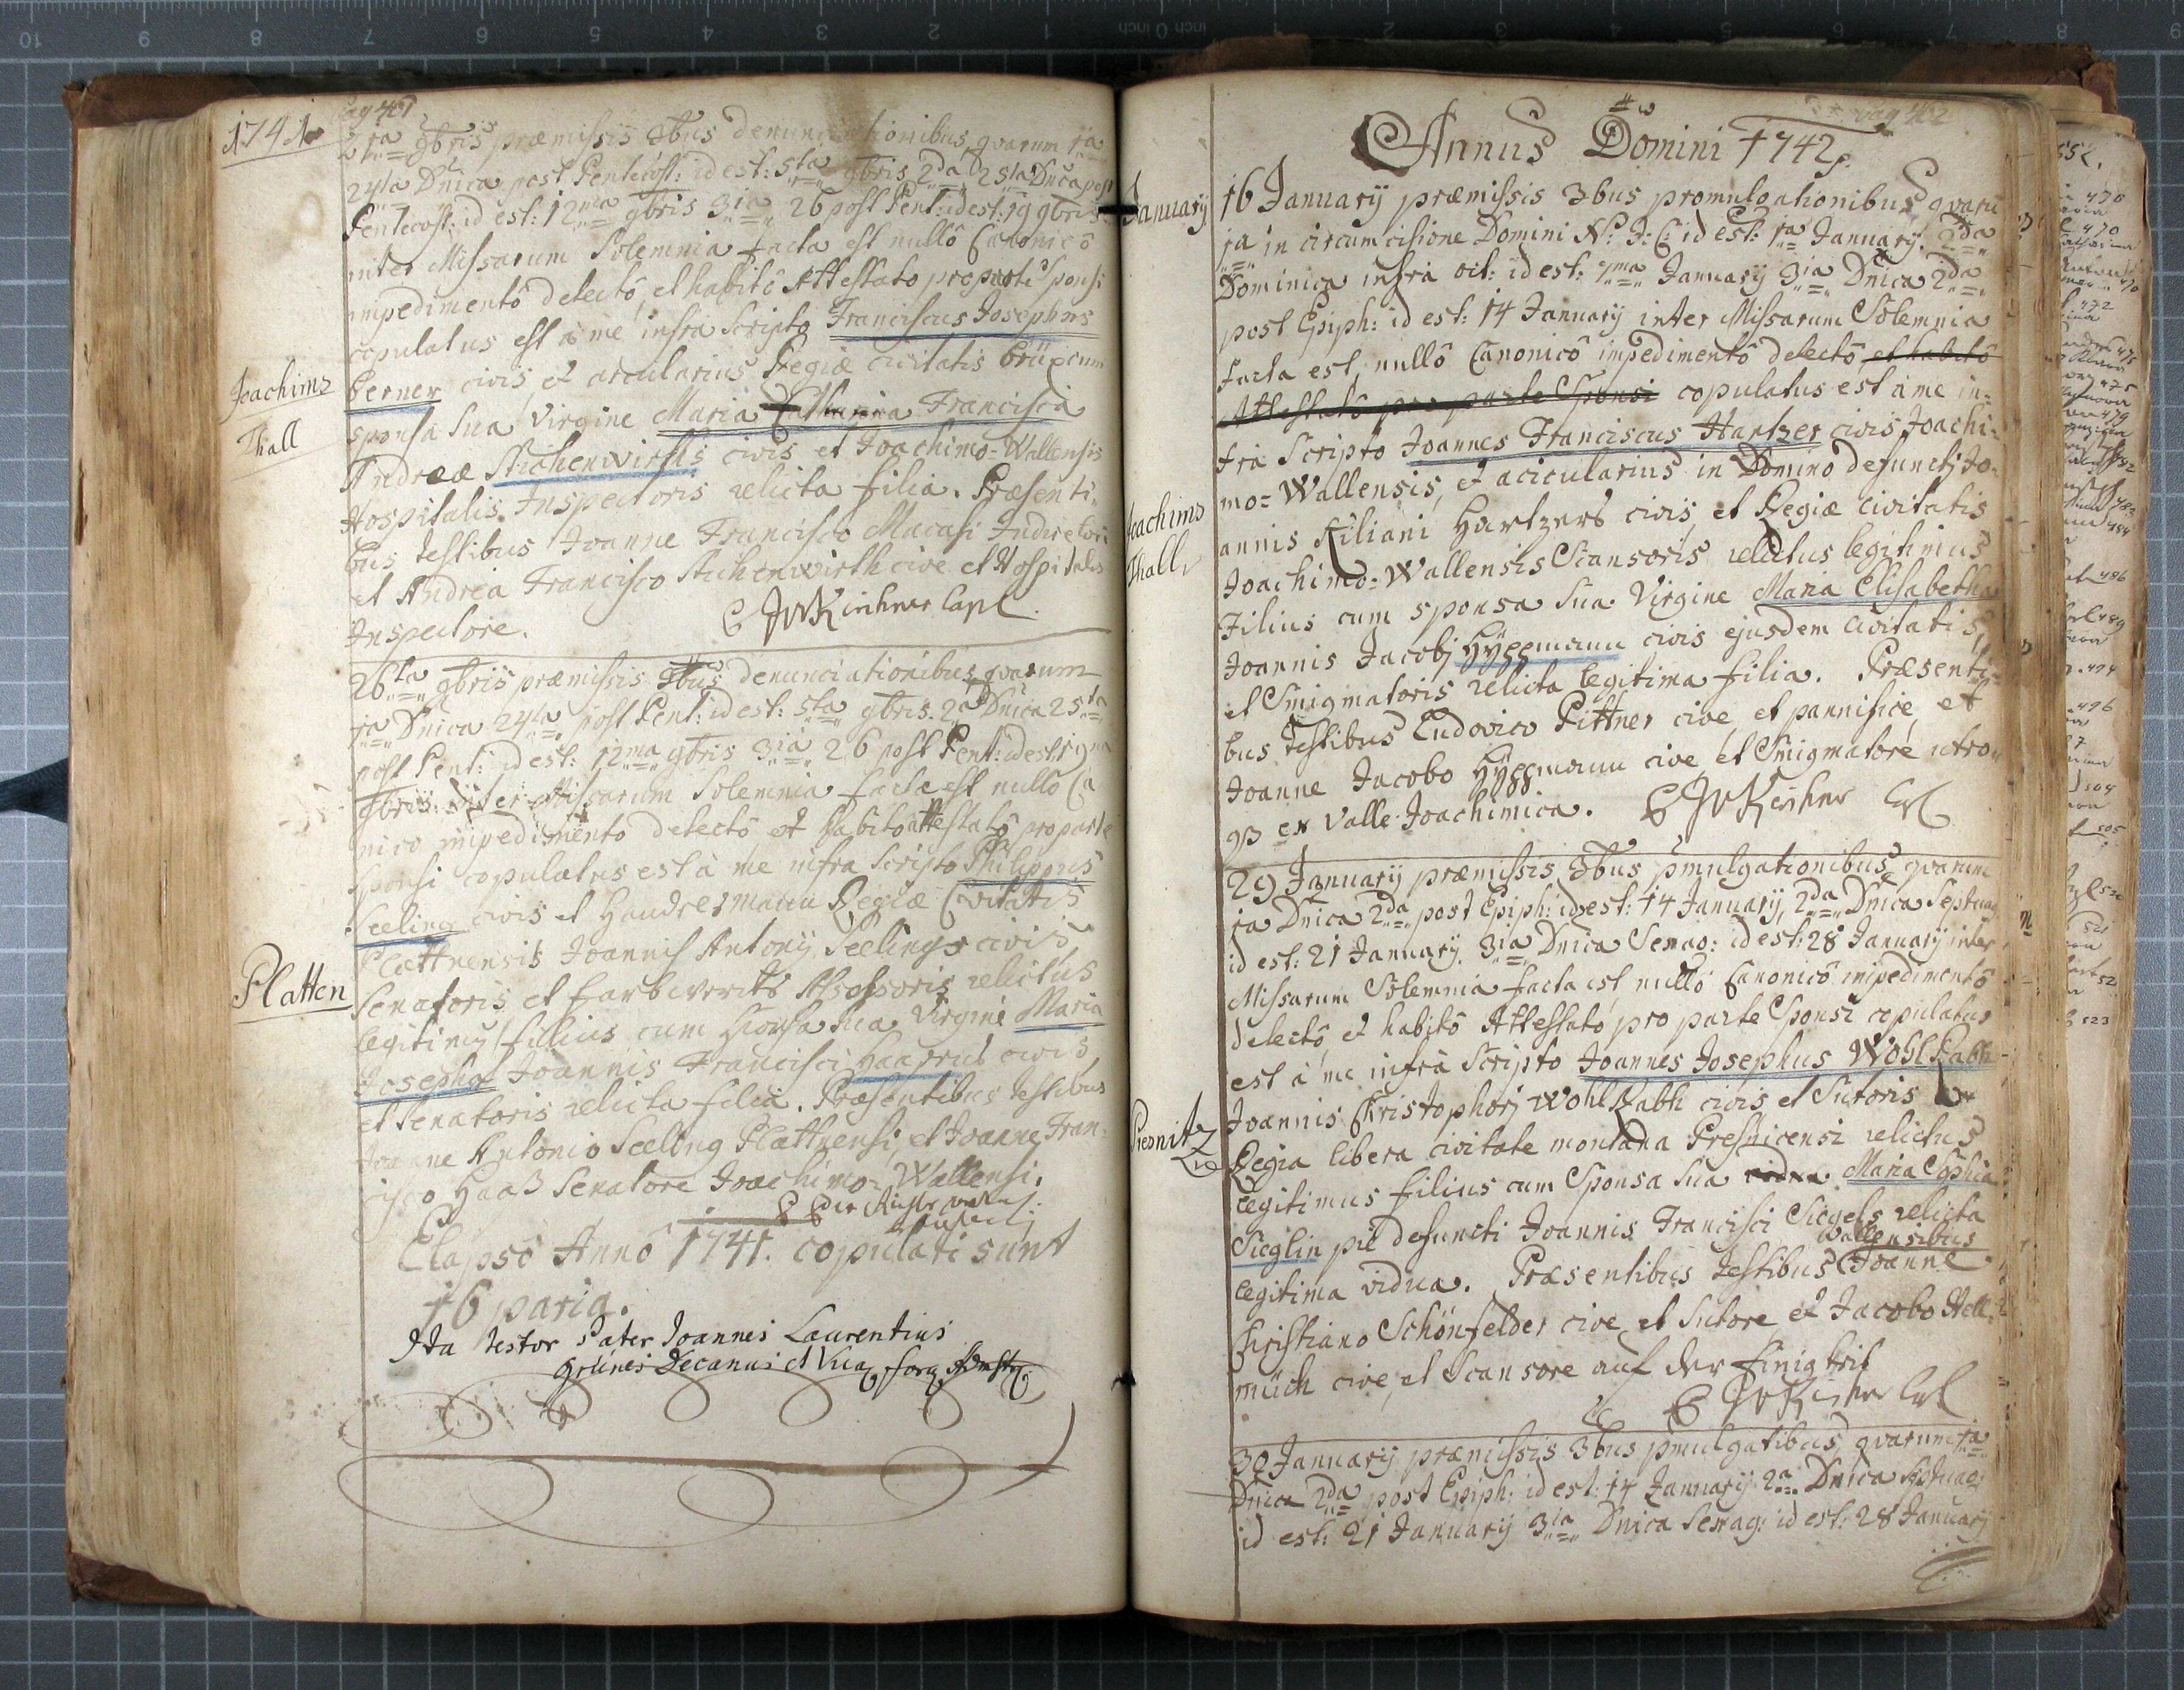 1741
pag 461
21ma 9bris præmissis 3bus denunciationibus, qvarum 1ma
24ta Dnica post Pentecost: id est: 5ta 9bris, 2da 25ta Dnica post
Pentecost: id est: 12ma 9bris 3ia 26 post Pent: id est: 19 9bris
inter Missarum Solemnia facta est nullô Canonicô
impedimentô detectô, et habitô Attestato pro parte Sponsi
copulatus est â me infra Scripto Franciscus Josephus
Joachims
Thall
Berner civis et arcularius Regiæ civitatis Brüx cum
sponsa sua Virgine Maria Catharina Francisca
Andreæ Stichenwirths civis et Joachimo=Wallensis
Hospitalis Inspectoris relicta filia. Præsenti=
bus testibus Joanne Francisco Macasi
et Andrea Francisco Stichenwirth cive et Hospitalis
Inspectore. Kirchner Capl.
26ta 9bris præmissis 3bus denunciationibus, qvarum
1ma Dnica 24ta post Pent: id est: 5ta 9bris. 2da Dnica 25ta
post Pent: id est: 12ma 9bris 3ia 26 post Pent: id est: 19na
9bris: inter Missarum Solemnia facta est nullo Ca
nico impedimento detectô et habitô attestatô pro parte
Sponsi copulatus est à me infra Scripto Philippus
Seeling civis et Handelsmann Regiæ Civitatis
Platten
Plattnensis Joannis Antonij Seelings civis,
Senatoris et farbwercks Assessoris relictus
legitimus filius cum sponsa sua Virgine Maria
Josepha Joannis Francisci Haasens civis,
et Senatoris relicta filia. Præsentibus testibus
Joanne Antonio Seeling Plattnensi, et Joanne Fran=
cisco Haaß Senatore Joachimo=Wallensi.
Elapso Anno 1741. copulati sunt
16 paria.
Ita testor Pater Joannes Laurentius
Grünes Decanus et Vica
pag 462
Annus Domini 1742.
January
16 January præmissis 3bus promulgationibus qvaru
1a in circumcisione Domini N: J: C: id est: 1a January. 2da
Dominica infrà oct: id est: 7ma January 3ia Dnica 2da
post Epiph: id est: 14 January inter Missarum Solemnia
facta est, nullô Canonicô impedimentô detectô et habitô
Attestatô pro parte Sponsi copulatus est à me in=
frà Scripto Joannes Franciscus Hartzer civis Joachi=
Joachims
Thall
mo=Wallensis, et acicularius in Domino defunctj Jo=
annis Kiliani Hartzers civis, et Regiæ civitatis
Joachimo=Wallensis Scansoris relictus legitimus
Filius cum sponsa sua Virgine Maria Elisabetha
Joannis Jacobj Hÿggmann civis ejusdem civitatis,
et Smigmatoris relicta legitima filia. Præsenti=
bus testibus Ludovico Pittner cive et pannifice, et
Joanne Jacobo Hÿggmann cive et Smigmatore utro=
qz ex Valle Joachimica. Kirchner Capl
29 January præmissis 3bus pmulgationibus, qvarum
1a Dnica 2da post Epiph: id est: 14 January, 2da Dnica Septuag
id est: 21 January. 3ia Dnica Sexag: id est: 28 January inter
Missarum Solemnia facta est nullô Canonicô impedimentô
detectô, et habitô Attestatô pro parte Sponsi copulatus
est à me infrà Scripto Joannes Josephus WohlRabh
Joannis Christophorj WohlRabh civis et Sutoris
Presnitz
Regia libera civitate montana Presnicensi relictus
legitimus filius cum Sponsa sua vidua Maria Sophia
Sieglin piè defuncti Joannis Francisci Siegels relicta
legitima vidua. Præsentibus testibus Wallensibus Joanne
Christiano Schönfelder cive, et Sutore et Jacobo Hell=
müch cive, et Scansore auf der Einigkeit
Kirchner Capl
30 January præmissis 3bus pmulgatibus, qvarum 1a
Dnica 2da post Epiph: id est: 14 January. 2a Dnica Septuag:
id est: 21 January 3ia Dnica Sexag: id est: 28 January